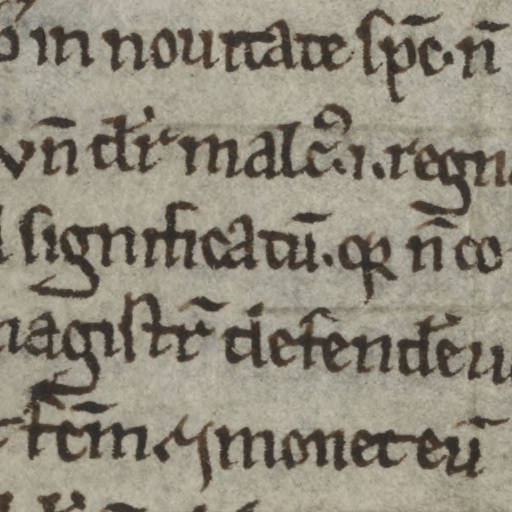 in nouitate sp̄c. n̄
vn̄ dr̄ malcꝰ .i. regn
significatū. qꝛ n̄ co
magistr̄ defenden
fc̄m. ⁊ monet eū